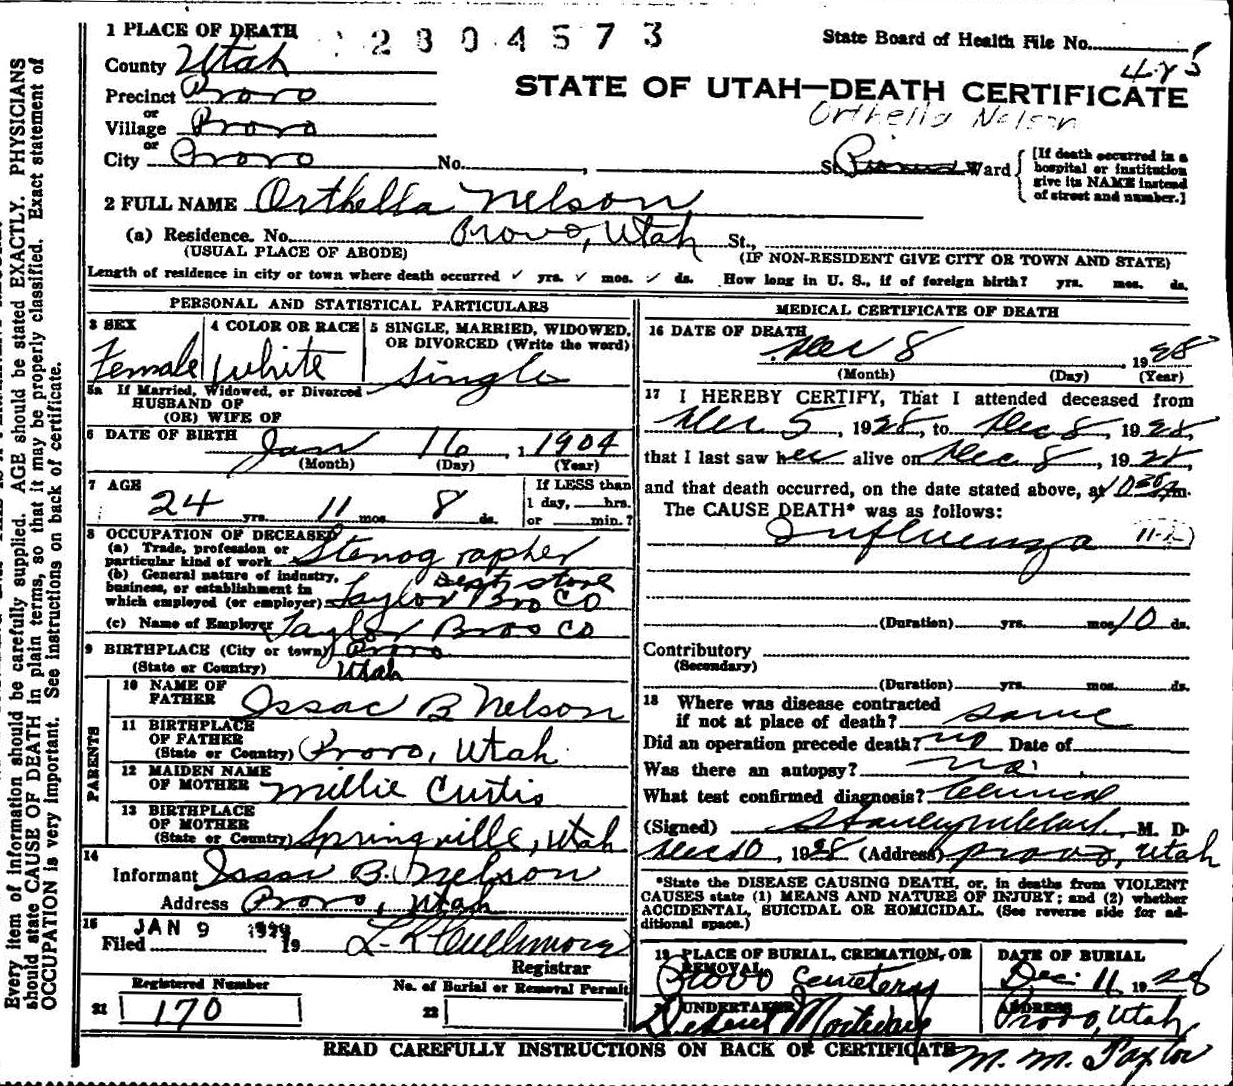 1 PLACE OF DEATH
2804573
State Board of Health File No.
485
County Utah
STATE OF UTAH—DEATH CERTIFICATE
Precinct Provo
Orthella Nelson
or
Village Provo
or
City Provo No. , St. Ward
[If death occurred in a hospital or institution give its NAME instead of street and number.]
2 FULL NAME Orthella Nelson
(a) Residence. No. Provo, Utah St.,
(USUAL PLACE OF ABODE) (IF NON-RESIDENT GIVE CITY OR TOWN AND STATE)
Length of residence in city or town where death occurred ✓ yrs. ✓ mos. ✓ ds. How long in U. S., if of foreign birth? yrs. mos. ds.
PERSONAL AND STATISTICAL PARTICULARS
3 SEX 4 COLOR OR RACE 5 SINGLE, MARRIED, WIDOWED, OR DIVORCED (Write the word)
Female white Single
5a If Married, Widowed, or Divorced
HUSBAND OF
(OR) WIFE OF
6 DATE OF BIRTH Jan 16, 1904
(Month) (Day) (Year)
7 AGE
24 yrs. 11 mos. 8 ds.
If LESS than 1 day, hrs. or min.?
8 OCCUPATION OF DECEASED
(a) Trade, profession or particular kind of work Stenographer
(b) General nature of industry, business, or establishment in which employed (or employer) Dept store Taylor Bro Co
(c) Name of Employer Taylor Bros Co
9 BIRTHPLACE (City or town) Provo
(State or Country) Utah
PARENTS
10 NAME OF FATHER Issac B Nelson
11 BIRTHPLACE OF FATHER (State or Country) Provo, Utah.
12 MAIDEN NAME OF MOTHER Millie Curtis
13 BIRTHPLACE OF MOTHER (State or Country) Springville, Utah
14
Informant Isaac B. Nelson
Address Provo, Utah
15 JAN 9 1929
Filed 19
Registrar
Registered Number No. of Burial or Removal Permit
21 170 22
MEDICAL CERTIFICATE OF DEATH
16 DATE OF DEATH
Dec 8 1928
(Month) (Day) (Year)
17 I HEREBY CERTIFY, That I attended deceased from
Dec 5, 1928, to Dec 8, 1928,
that I last saw her alive on Dec. 8, 1928,
and that death occurred, on the date stated above, at m.
The CAUSE DEATH* was as follows:
Influenza
(Duration) yrs. mos. 10 ds.
Contributory
(Secondary)
(Duration) yrs. mos. ds.
18 Where was disease contracted
if not at place of death? same
Did an operation precede death? no Date of
Was there an autopsy? no.
What test confirmed diagnosis? Clinical
(Signed) M. D.
Dec 10, 1928 (Address) Provo, Utah
*State the DISEASE CAUSING DEATH, or, in deaths from VIOLENT
CAUSES state (1) MEANS AND NATURE OF INJURY; and (2) whether
ACCIDENTAL, SUICIDAL OR HOMICIDAL. (See reverse side for additional space.)
19 PLACE OF BURIAL, CREMATION, OR REMOVAL DATE OF BURIAL
Provo Cemetery Dec. 11, 1928
UNDERTAKER ADDRESS
Deseret Mortuary Provo, Utah
READ CAREFULLY INSTRUCTIONS ON BACK OF CERTIFICATE
M. M. Taylor
Every item of information should be carefully supplied. AGE should be stated EXACTLY. PHYSICIANS
should state CAUSE OF DEATH in plain terms, so that it may be properly classified. Exact statement of
OCCUPATION is very important. See instructions on back of certificate.